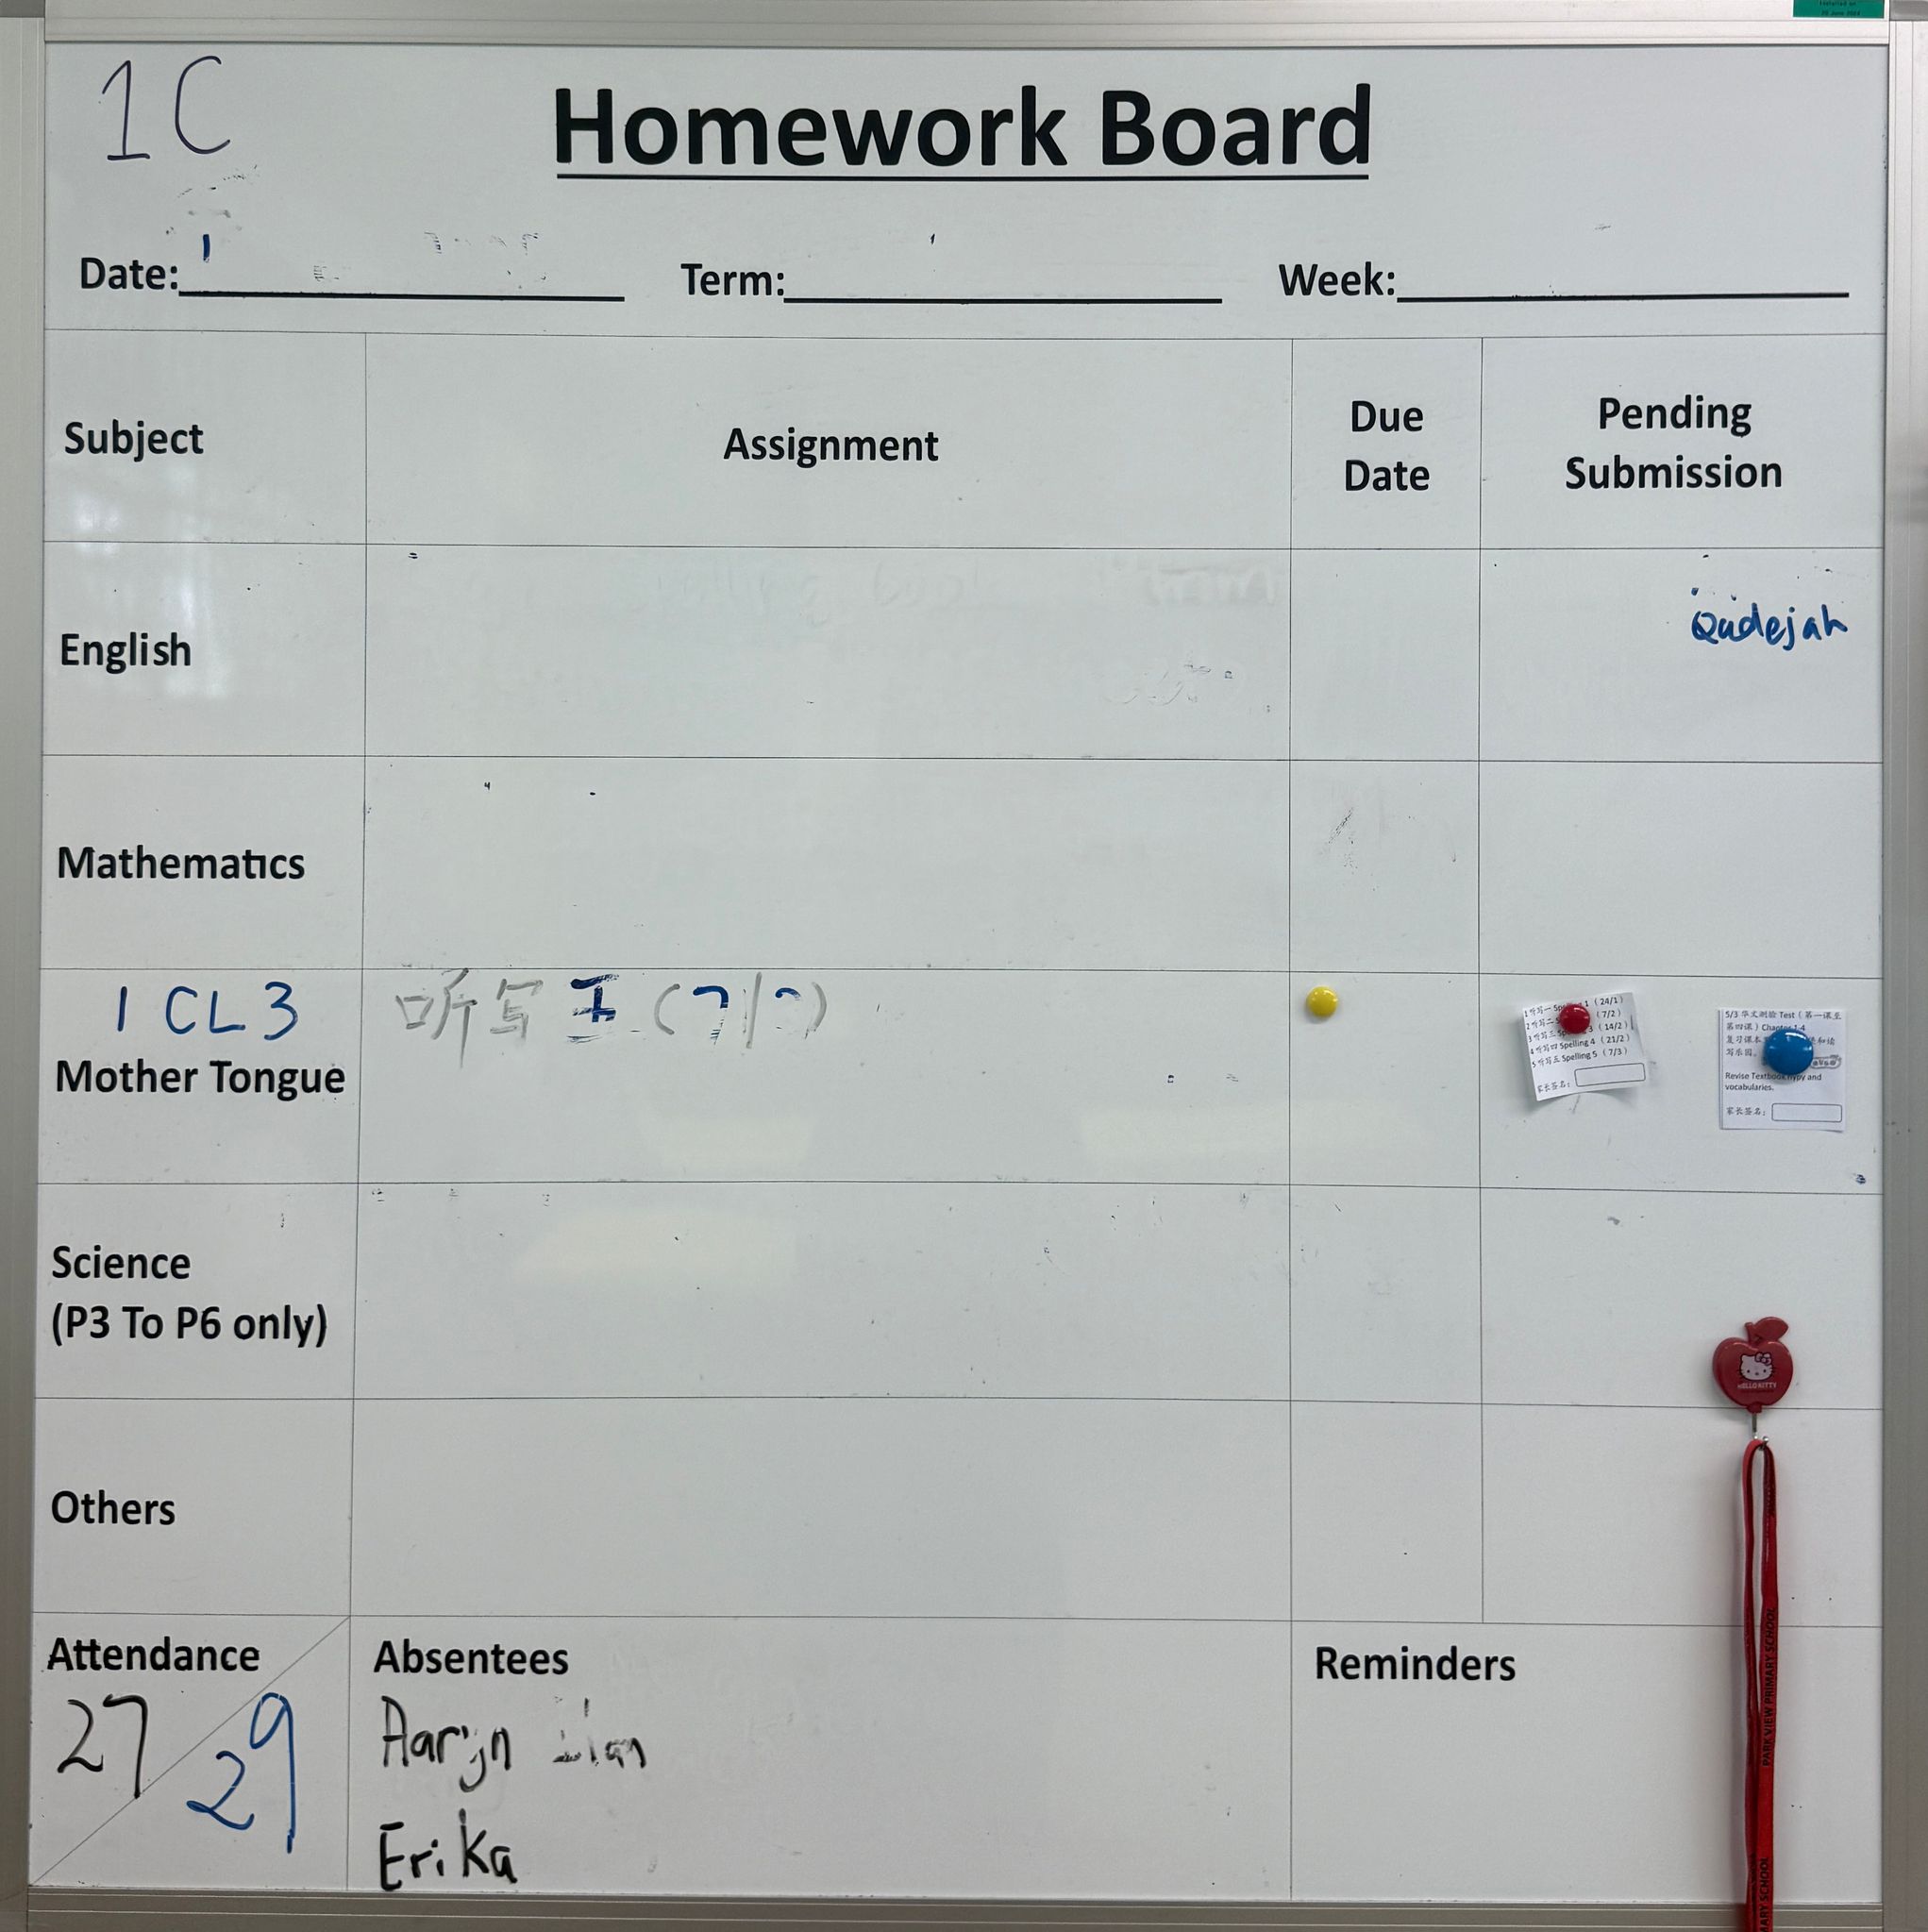 Installed on
20 June 2024
1C
Homework Board
Date:
Term:
Week:
Subject
Assignment
Due
Date
Pending
Submission
English
Qudejah
Mathematics
1 CL3
Mother Tongue
听写五 (7/3)
1 听写一 Spelling 1 (24/1)
(7/2)
(14/2)
4 听写四 Spelling 4 (21/2)
5 听写五 Spelling 5 (7/3)
家长签名：
5/3 华文测验 Test（第一课至
第四课）Chapter 1-4
复习课本
写乐园。
Revise Textbook
and
vocabularies.
家长签名：
Science
(P3 To P6 only)
HELLO KITTY
Others
Attendance
27
29
Absentees
Aaryn
Erika
Reminders
PARK VIEW PRIMARY SCHOOL